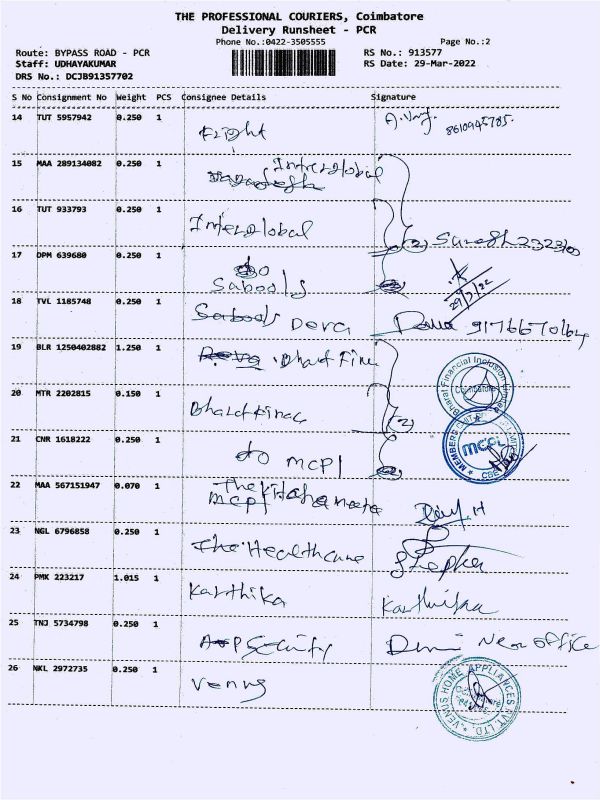 THE PROFESSIONAL COURIERS, Coimbatore
Delivery Runsheet - PCR
Phone No.:0422-3505555 Page No.:2
Route: BYPASS ROAD - PCR RS No.: 913577
Staff: UDHAYAKUMAR RS Date: 29-Mar-2022
DRS No.: DCJB91357702
S No Consignment No Weight PCS Consignee Details Signature
14 TUT 5957942 0.250 1 8610945785
15 MAA 289134082 0.250 1 Interglobal
16 TUT 933793 0.250 1 Interglobal
(2) Suresh
17 OPM 639680 0.250 1 do
Sabools
29/3/22
18 TVL 1185748 0.250 1 Sabools Deva 9176670164
19 BLR 1250402882 1.250 1 Bharat Fine
Bharat Financial Inclusion Limited
Coimbatore
20 MTR 2202815 0.150 1 Bharat Finac (2)
21 CNR 1618222 0.250 1 do mcpl
mcpl
22 MAA 567151947 0.070 1
mcpl
23 NGL 6796858 0.250 1 The Healthcare
24 PMK 223217 1.015 1 Karthika Karthika
25 TNJ 5734798 0.250 1 Security Near office
26 NKL 2972735 0.250 1 Venus
VENUS HOME APPLIANCES PVT. LTD.